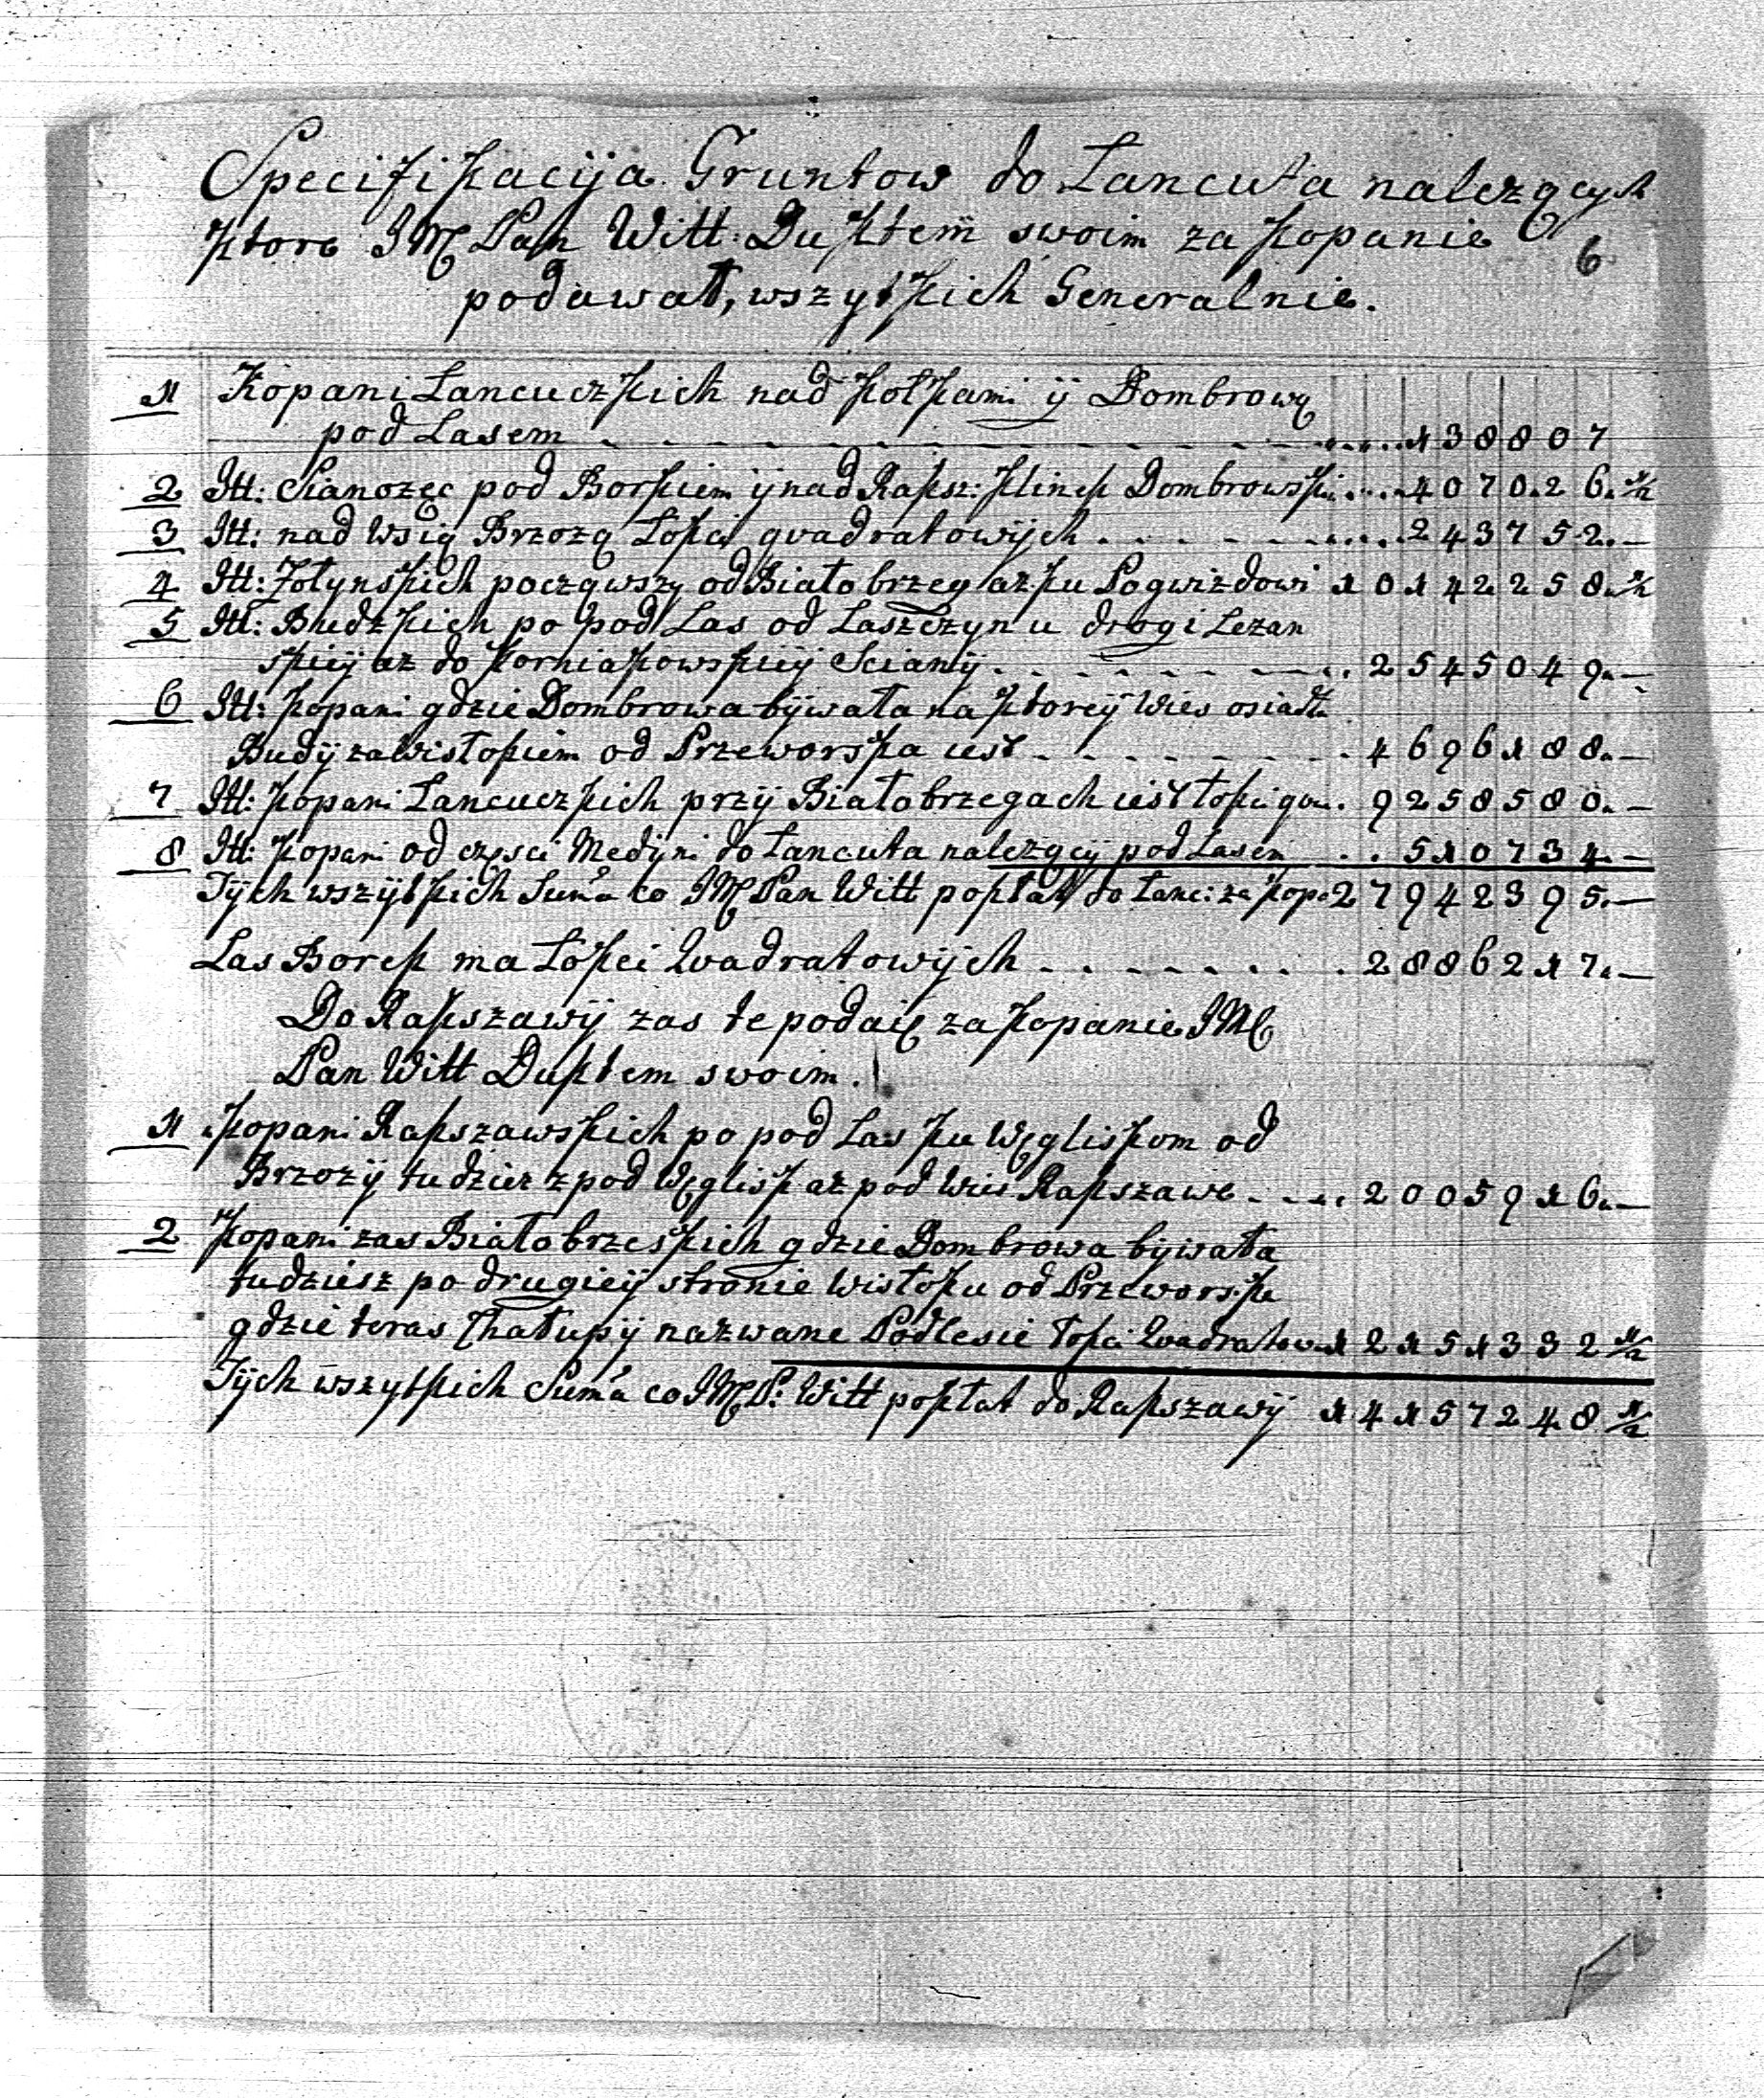 Specifikacija Gruntow do Lancuta należących
ktore JMć Pan Witt Duktem swoim za kopanie
6
podawał, wszytkich Generalnie.
1 Kopani Lancuczkich nad kołkami ÿ Dombrową
pod Lasem 138807
2 Itt: Sianożęc pod Borkiem ÿ nad Raksz: klinek Dombrowski 407026 1/2
3 Itt: nad Wsią Brzozą Lokci quadratowÿch 243752
4 Itt: Żołynskich począwszy od Białobrzeg aż ku Pogwizdowi 10142258 1/2
5 Itt: Budzkich po pod Las od Laszczyn u drogi Lezan
skieÿ az do Korniakowskieÿ Scianÿ 2545049
6 Itt: Kopani gdzie Dombrowa bÿwała na ktoreÿ Wies osiadła
Budÿ za Wisłokiem od Przeworska iest 4696188
7 Itt: Kopani Lancuczkich przÿ Białobrzegach iest łokci qua. 9258580
8 Itt: Kopani od częsci Medÿni do Lancuta należącÿ pod Lasem 510734
Tÿch wszÿtkich Suma co JMć Pan Witt popłat do Lanc: za kopa 27942395
Las Borek ma Lokci Quadratowÿch 2886217
Do Rakszawÿ zas te podaię za kopanie JMć
Pan Witt Duktem swoim.
1 Kopani Rakszawskich po pod Las ku Węgliskom od
Brzozÿ tudziez z pod Węglisk aż pod Wies Rakszawe 2005916
2 Kopani zas Białobrzeskich gdzie Dombrowa bÿwała
tudziesz po drugieÿ stronie Wisłoku od Przeworska
gdzie teras Chałupÿ nazwane Podlesie łokci Quadratow. 12151332 1/2
Tÿch wszytkich Suma co JMć P: Witt popłat do Rakszawÿ 14157248 1/2